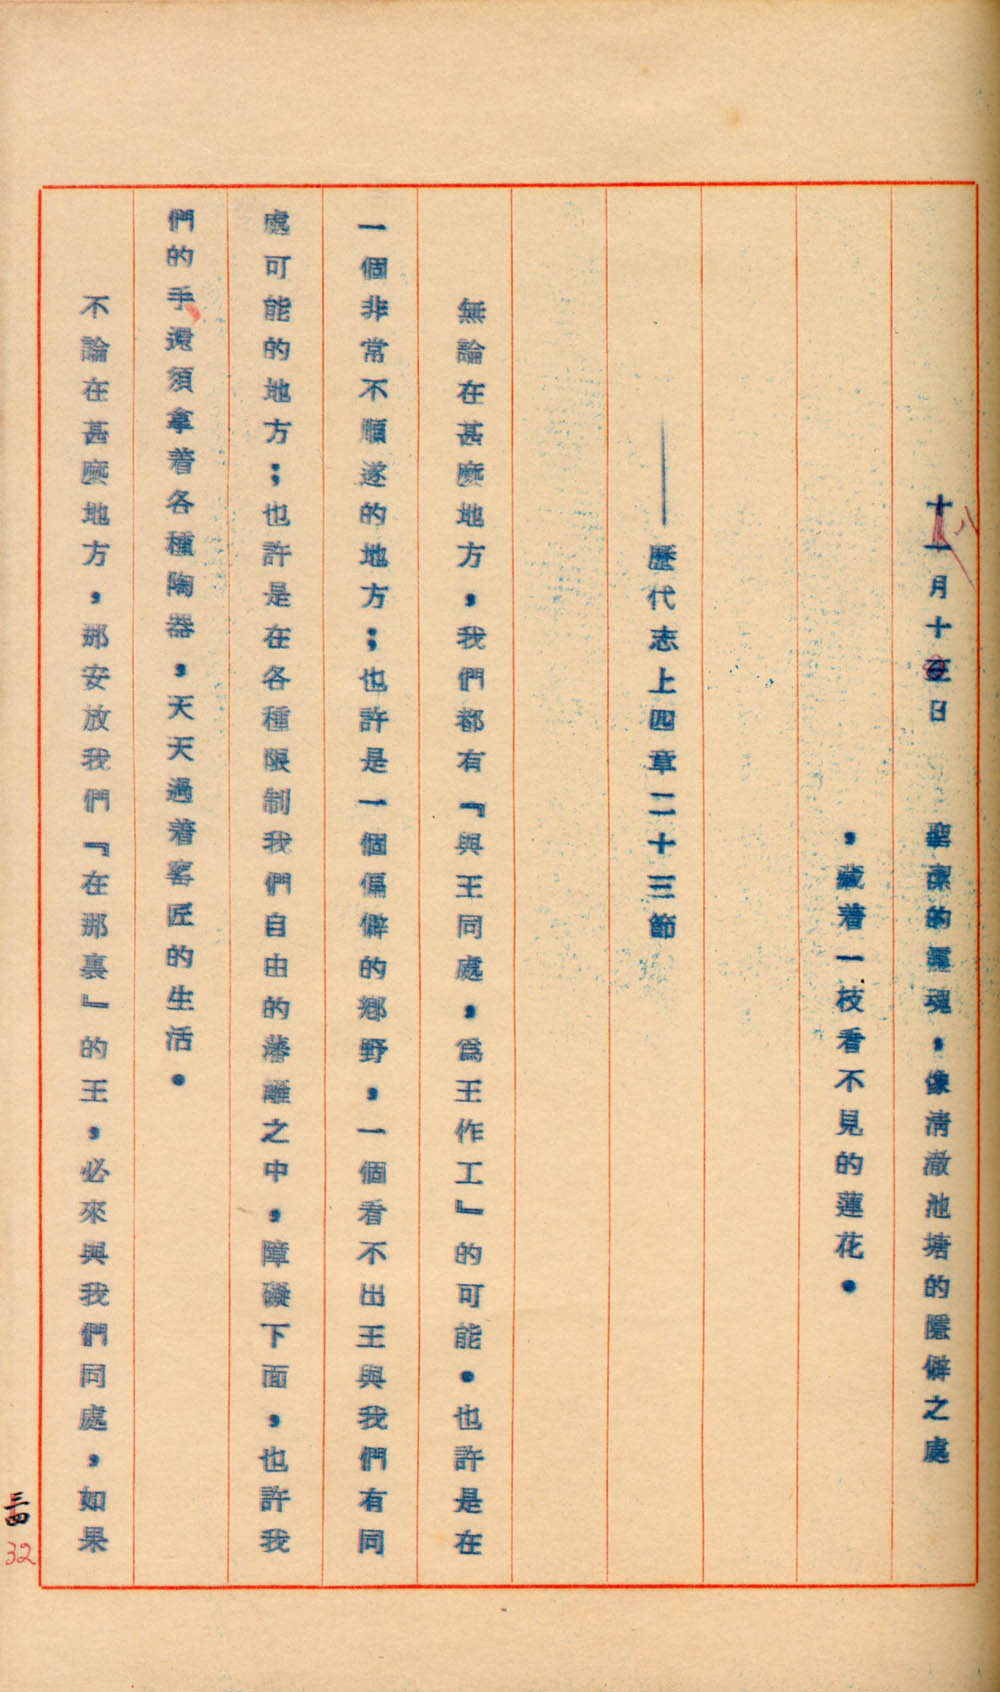 十一月十五日　聖潔的靈魂，像清澈池塘的隱僻之處
八
，藏着一枝看不見的蓮花。
——歷代志上四章二十三節
無論在甚麽地方，我們都有『與王同處，爲王作工』的可能。也許是在
一個非常不順遂的地方；也許是一個偏僻的鄉野，一個看不出王與我們有同
處可能的地方；也許是在各種限制我們自由的藩籬之中，障礙下面，也許我
們的手還須拿着各種陶器，天天過着窰匠的生活。
不論在甚麽地方，那安放我們『在那裏』的王，必來與我們同處，如果
三四
32